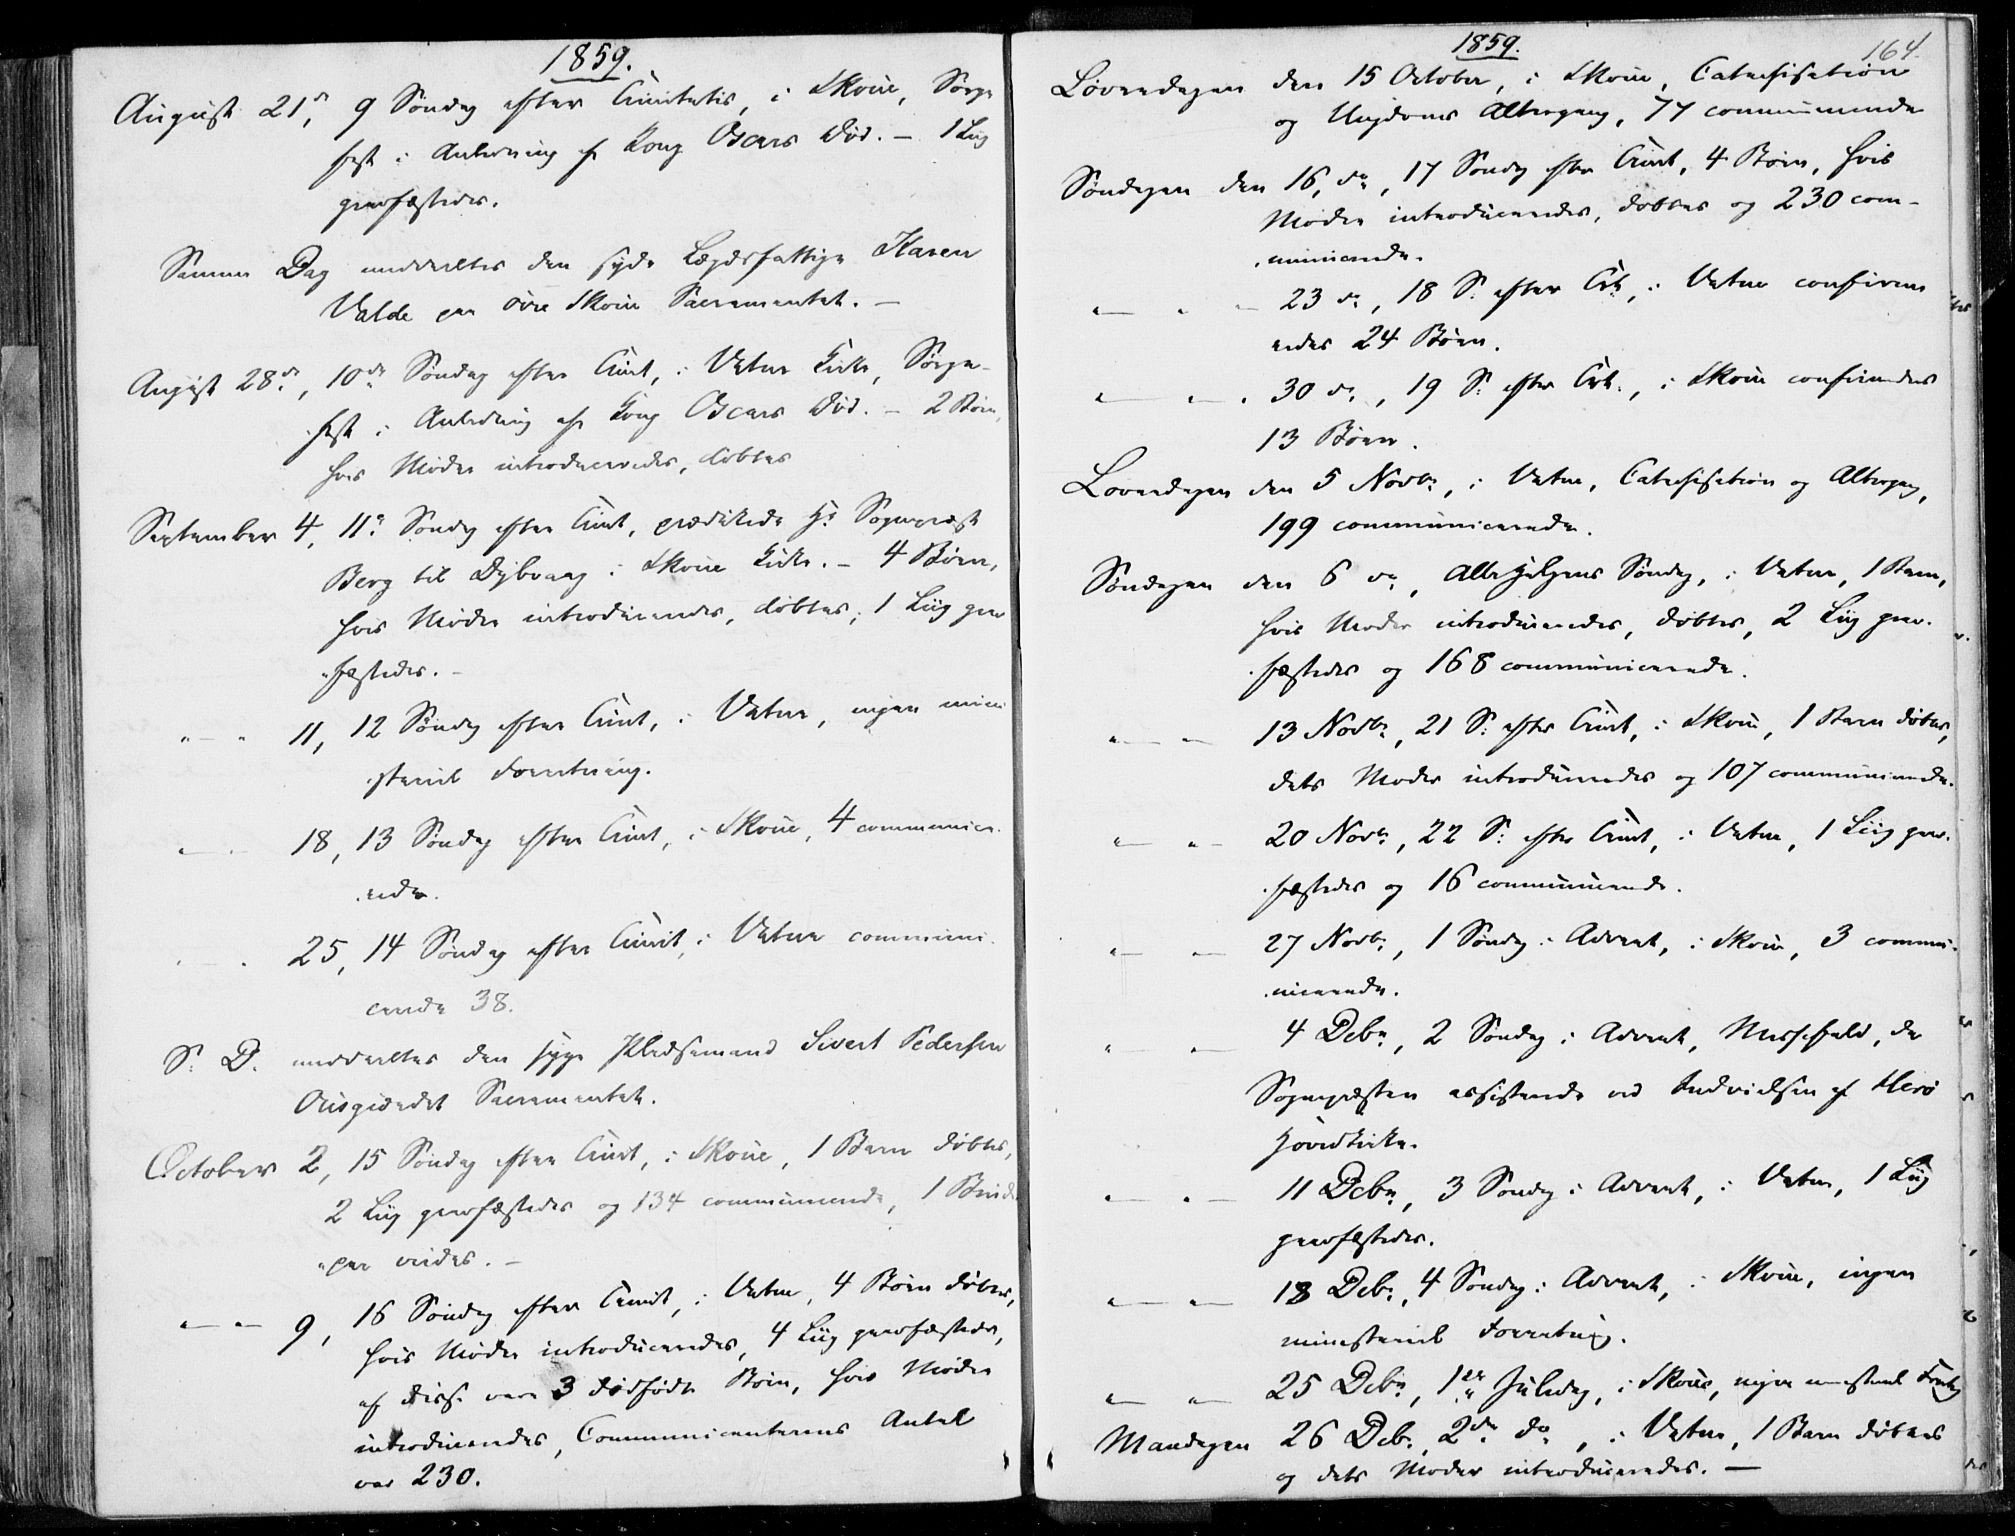 1859.
August 21de, 9 Søndag efter Trinitatis, i Skoue, Sørge
fest i Anledning af Kong Oscars Død. – 1 Liig
gravfæstedes.
Samme Dag meddeeltes den syge Lægdsfattige Karen
Valde paa øvre Skoue Sacramentet. –
August 28de, 10de Søndag efter Trinit, i Vatne Kirke, Sørge-
fest i Anledning af Kong Oscars Død. – 2 Børn,
hvis Mødre introduceredes, døbtes
September 4, 11te Søndag efter Trinit, prædikede Hr Sognepræst
Berg til Dybvaag i Skoue Kirke. – 4 Børn,
hvis Mødre introduceredes, døbtes; 1 Liig grav
fæstedes. –
" — " 11, 12 Søndag efter Trinit, i Vatne, ingen mini
steriel Forretning.
" — " 18, 13 Søndag efter Trinit, i Skoue, 4 communice-
rede.
" — " 25, 14 Søndag efter Trinit, i Vatne communi-
cerede 38.
S. D. meddeeltes den syge Pladsemand Sivert Pedersen
Sacramentet.
October 2, 15 Søndag efter Trinit, i Skoue, 1 Barn døbtes,
2 Liig gravfæstedes og 134 communicerede, 1 Brude
par viedes. –
" — " — 9, 16 Søndag efter Trinit, i Vatne, 4 Børn døbtes,
hvis Mødre introduceredes, 4 Liig gravfæstedes,
af disse vare 3 dødfødte Børn, hvis Mødre
introduceredes, Communicanternes Antal
var 230.
1859.
164.
Løverdagen den 15 October, i Skoue, Catechisation
og Ungdoms Altergang, 77 communicerede
Søndagen den 16, do, 17 Søndag efter Trinit, 4 Børn, hvis
Mødre introduceredes, døbtes og 230 com-
municerede.
" — " — 23 do, 18 S. efter Trt, i Vatne confirme
redes 24 Børn.
" — " — 30 do, 19 S. efter Trt., i Skoue confirmeredes
13 Børn.
Løverdagen den 5 Novbr, i Vatne, Catechisation og Altergang,
199 communicerede.
Søndagen den 6 do, Alle Helgens Søndag, i Vatne, 1 Barn,
hvis Moder introduceredes, døbtes, 2 Liig grav-
fæstedes og 168 communicerede.
" — " — 13 Novbr, 21 S. efter Trinit, i Skoue, 1 Barn døbtes,
dets Moder introduceredes og 107 communicerede.
" — " — 20 Novbr, 22 S. efter Trinit, i Vatne, 1 Liig grav-
fæstedes og 16 communicerede.
" — " — 27 Novbr, 1 Søndag i Advent, i Skoue, 3 commu-
nicerede.
" — " — 4 Debr, 2 Søndag i Advent, Messefald, da
Sognepræsten assisterede ved Indvielsen af Herø
Hovedkirke.
" — " — 11 Debr, 3 Søndag i Advent, i Vatne, 1 Liig
gravfæstedes.
" — " — 18 Debr, 4 Søndag i Advent, i Skoue, ingen
ministeriel Forretning.
" — " — 25 Debr, 1ste Juledag, i Skoue, ingen ministeriel Forretng
Mandagen 26 Debr, 2den do, i Vatne, 1 Barn døbtes
og dets Moder introduceredes. —